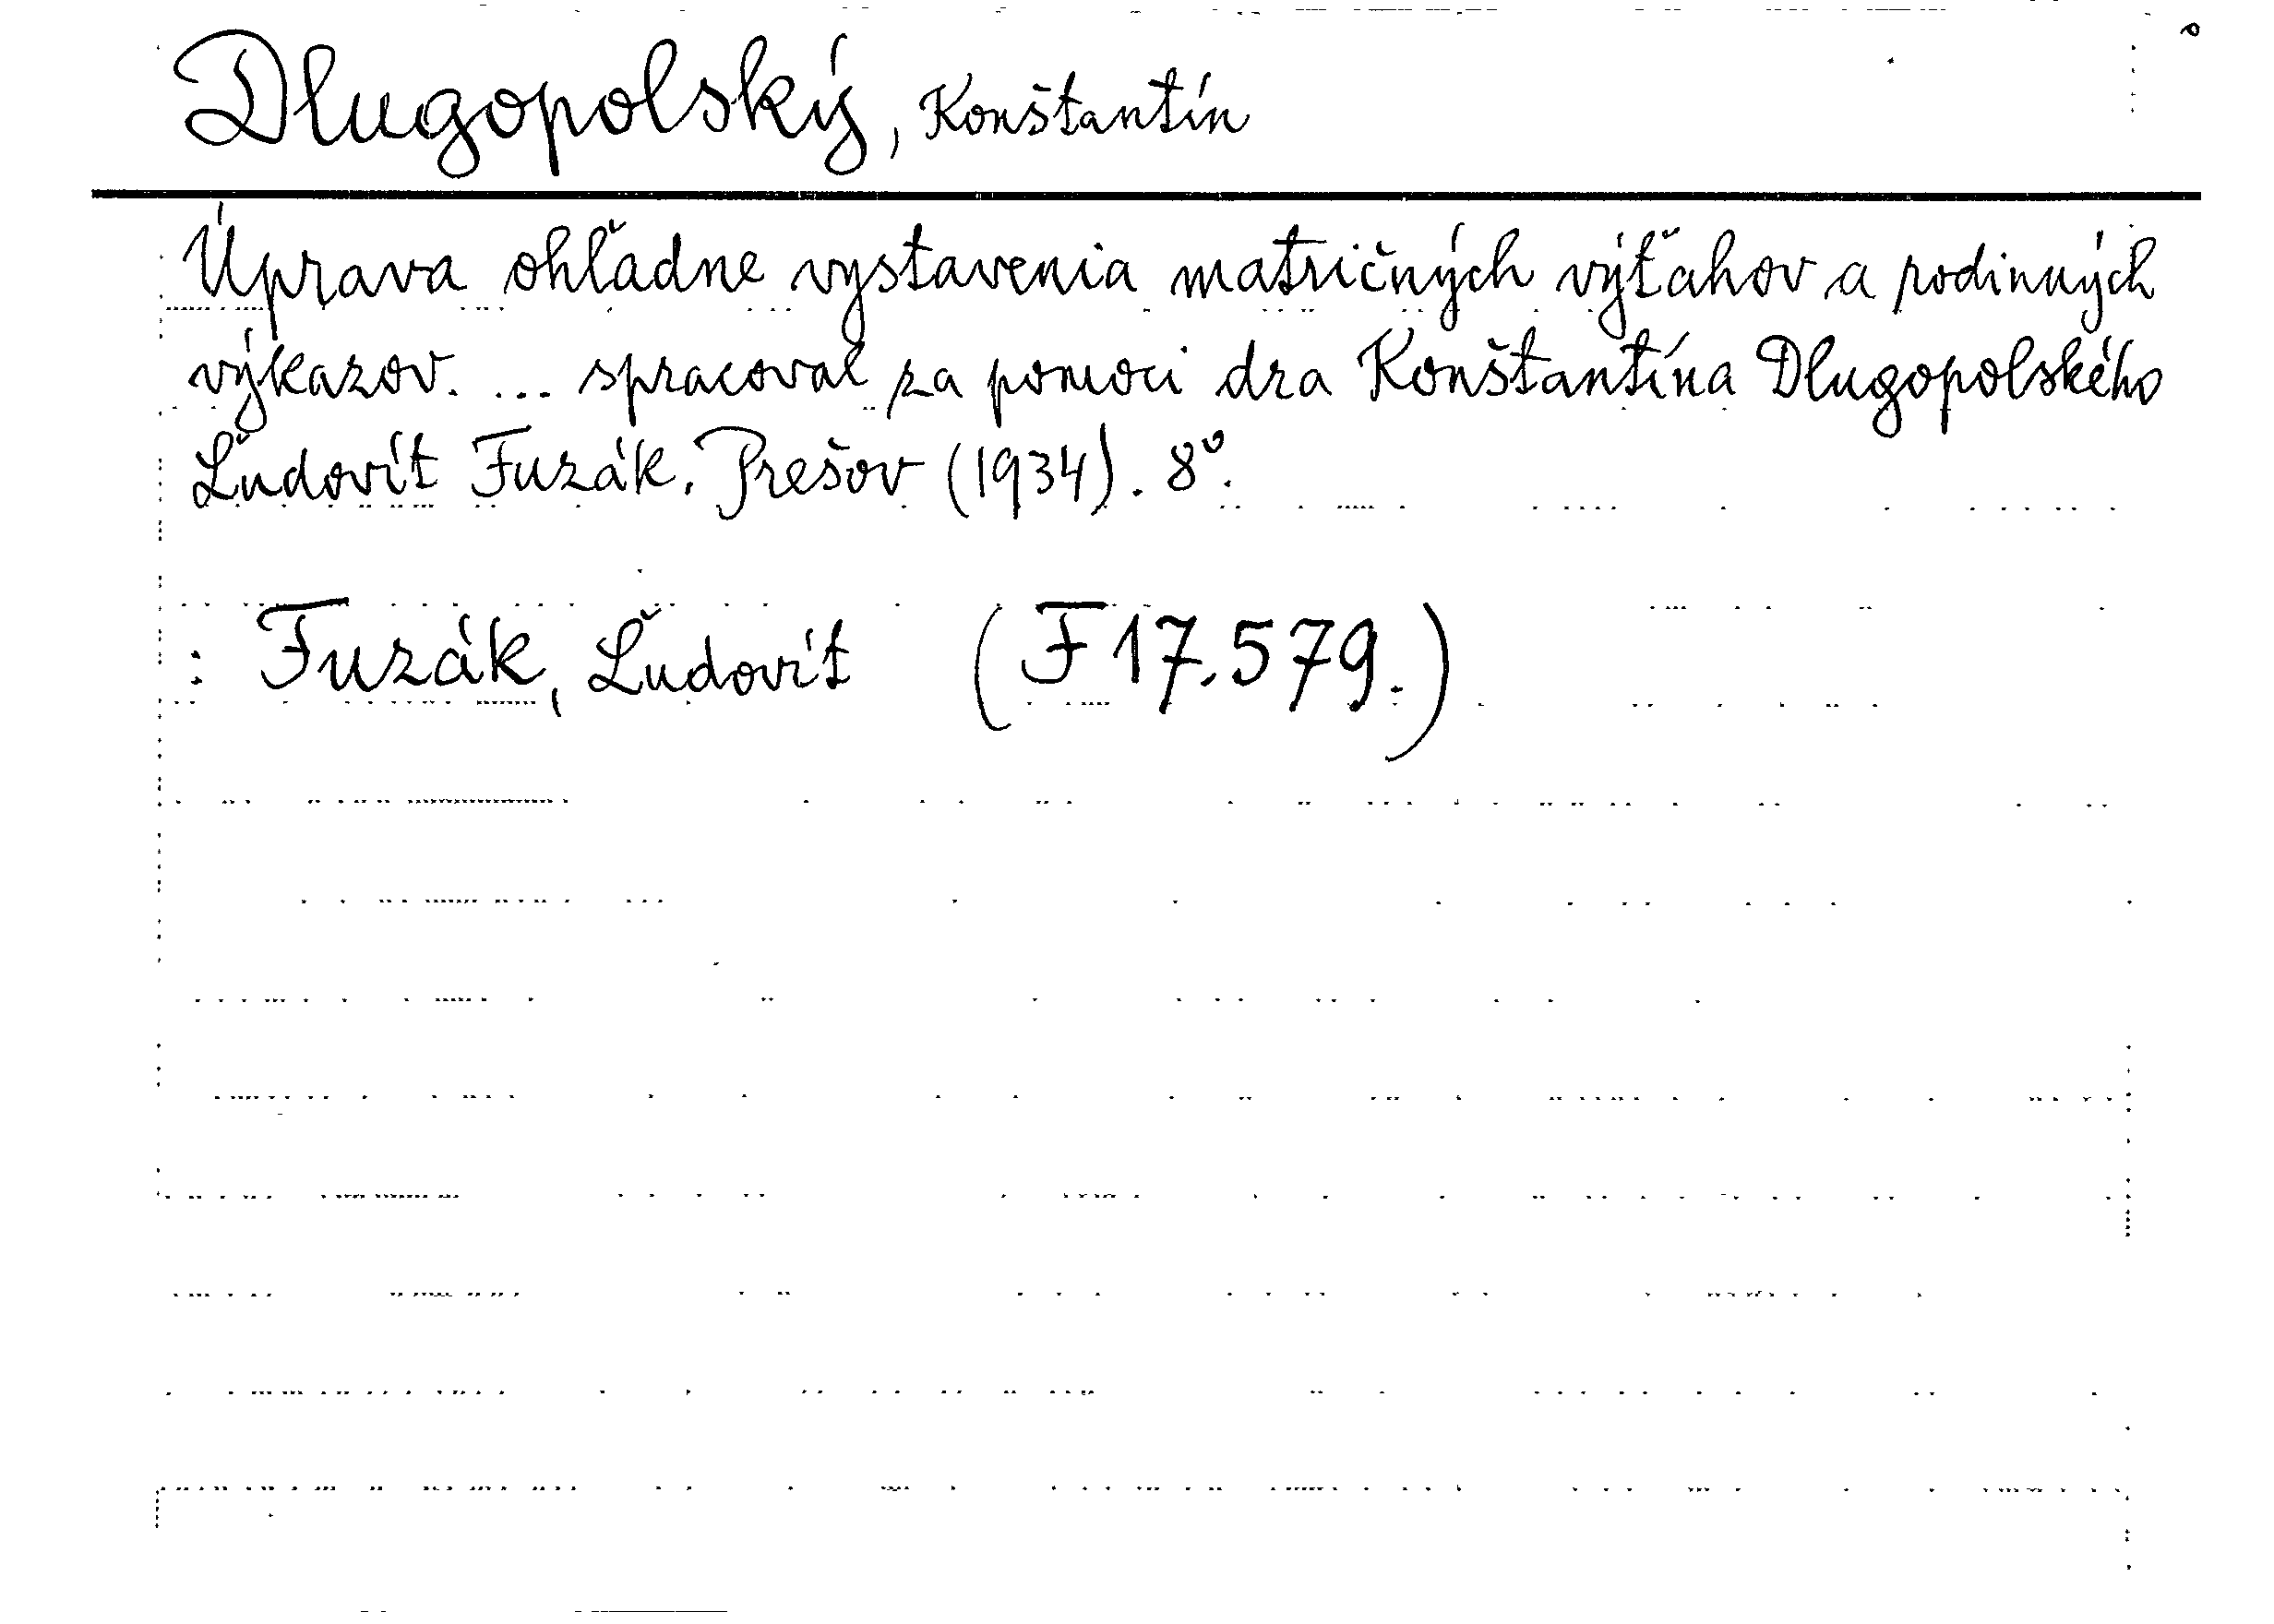 Dlugopolský, Konštantín
Úprava ohľadne vystavenia matričných výťahov a rodinných
výkazov. ... spracoval za pomoci dra Konštantína Dlugopolského
Ľudovít Fuzák. Prešov (1934). 8°.
: Fuzák, Ľudovít (F 17.579.)